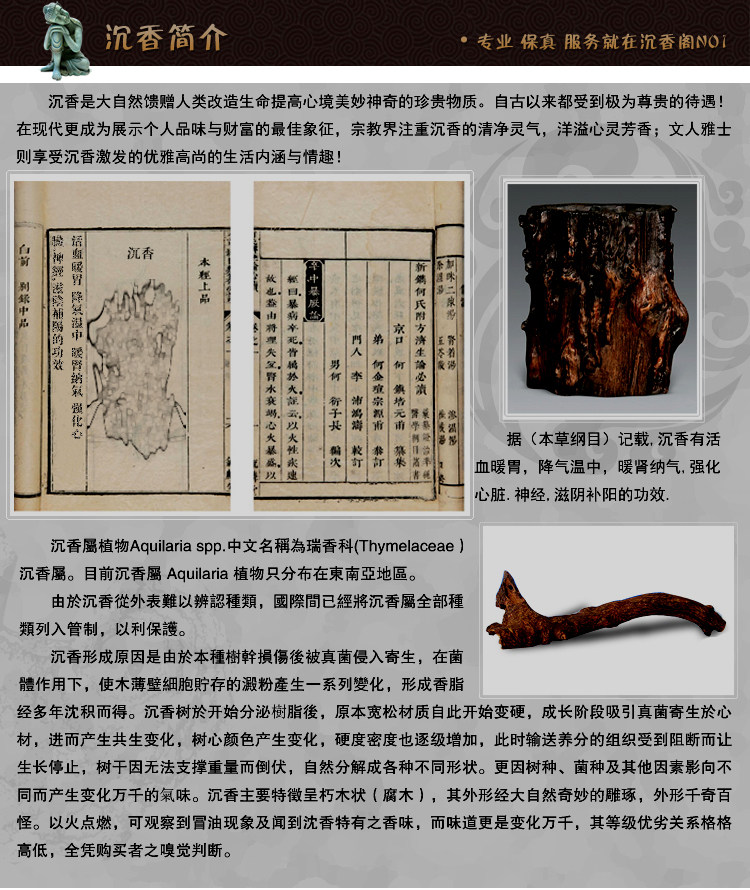 沉香简介
• 专业 保真 服务就在沉香阁NO1
沉香是大自然馈赠人类改造生命提高心境美妙神奇的珍贵物质。自古以来都受到极为尊贵的待遇！
在现代更成为展示个人品味与财富的最佳象征，宗教界注重沉香的清净灵气，洋溢心灵芳香；文人雅士
则享受沉香激发的优雅高尚的生活内涵与情趣！
本經上品
沉香
活血暖胃 降氣温中 暖腎納氣 强化心
臟 神經 滋陰補陽的功效
新鐫何氏附方濟生論必讀
京口 何 鎮培元甫 纂集
弟 何金瑄宗源甫 叅訂
門人 李 沛鴻濤 較訂
男何 衍子長 編次
卒中暴厥論
經曰暴病卒死皆屬於火註云以火性疾速
故也蓋由將理失宜腎水衰竭心火暴盛以
据（本草纲目）记载, 沉香有活
血暖胃，降气温中，暖肾纳气, 强化
心脏. 神经, 滋阴补阳的功效.
沉香屬植物Aquilaria spp.中文名稱為瑞香科(Thymelaceae )
沉香屬。目前沉香屬 Aquilaria 植物只分布在東南亞地區。
由於沉香從外表難以辨認種類，國際間已經將沉香屬全部種
類列入管制，以利保護。
沉香形成原因是由於本種樹幹損傷後被真菌侵入寄生，在菌
體作用下，使木薄壁細胞貯存的澱粉產生一系列變化，形成香脂
经多年沈积而得。沉香树於开始分泌樹脂後，原本宽松材质自此开始变硬，成长阶段吸引真菌寄生於心
材，进而产生共生变化，树心颜色产生变化，硬度密度也逐级增加，此时输送养分的组织受到阻断而让
生长停止，树干因无法支撑重量而倒伏，自然分解成各种不同形状。更因树种、菌种及其他因素影向不
同而产生变化万千的氣味。沉香主要特徵呈朽木状（腐木），其外形经大自然奇妙的雕琢，外形千奇百
怪。以火点燃，可观察到冒油现象及闻到沈香特有之香味，而味道更是变化万千，其等级优劣关系格格
高低，全凭购买者之嗅觉判断。